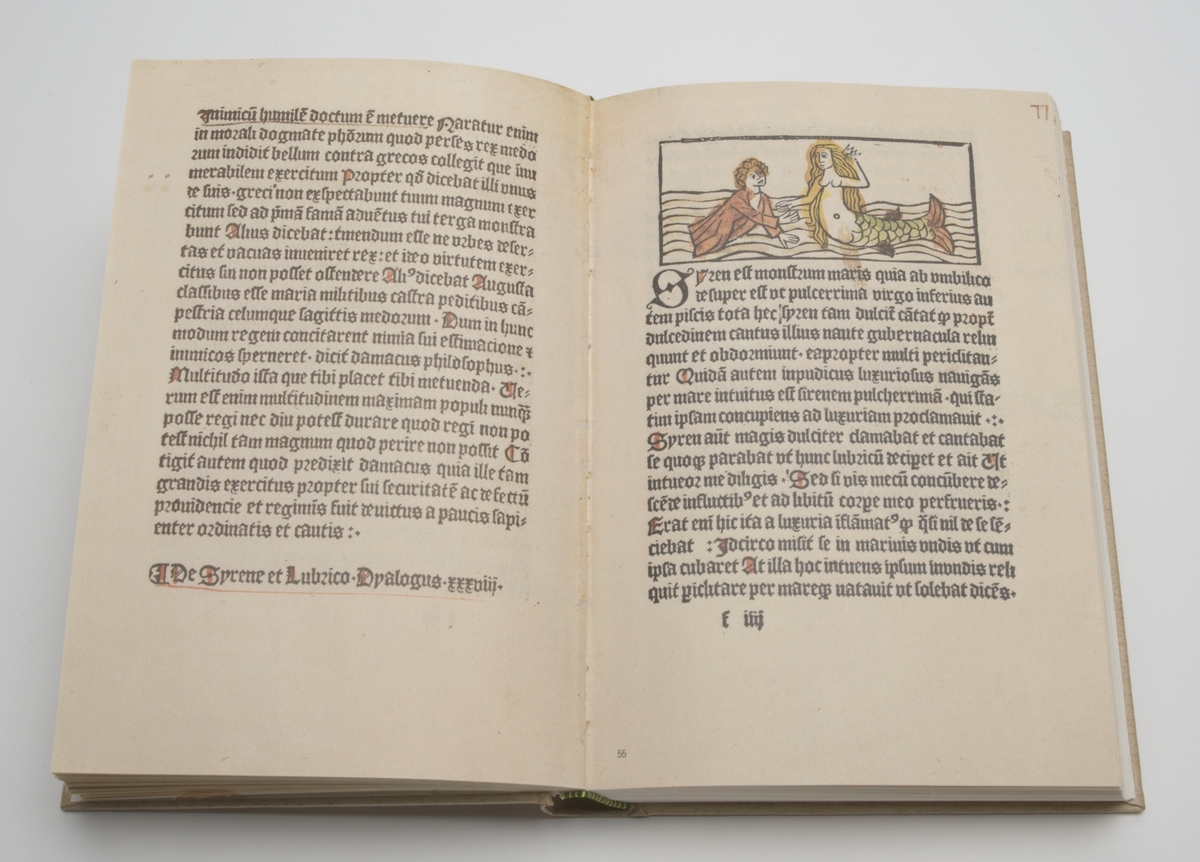 Inimicū humilē doctum ē metuere Naratur enim
in morali dogmate phōrum quod perses rex medo
rum indidit bellum contra grecos collegit que inu
merabilem exercitum Propter qd̄ dicebat illi vnus
de suis· greci non exspectabunt tuum magnum exer
citum sed ad pmā famā aduētus tui terga monstra
bunt Alius dicebat : tmendum esse ne vrbes deser⸗
tas et vacuas inueniret rex: et ideo virtutem exer⸗
citus sui non posset ostendere Aliꝰ dicebat Augusta
classibus esse maria militibus castra peditibus cā⸗
pestria celumque sagittis medorum · Dum in hunc
modum regem concitarent nimia sui estimacione ⁊
inimicos sperneret· dicit damacus philosophus· :·
Multitudo ista que tibi placet tibi metuenda· Ue⸗
rum est enim multitudinem maximam populi nunqȝ
posse regi nec diu potest durare quod regi non po
test nichil tam magnum quod perire non possit Cō
tigit autem quod predixit damacus quia ille tam
grandis exercitus propter sui securitatē ac defectū
prouidencie et regimīs fuit deuictus a paucis sapi⸗
enter ordinatis et cautis :·
De Syrene et Lubrico· Dyalogus· xxxviij·
Syren est monstrum maris quia ab vmbilico
desuper est vt pulcerrima virgo inferius au
tem piscis tota hec syren tam dulcit̄ cātat ꝙ propt̄
dulcedinem cantus illius naute gubernacula relin
quunt et obdormiunt· eapropter multi periclitan⸗
tur Quidā autem inpudicus luxuriosus nauigās
per mare intuitus est sirenem pulcherrimā · qui sta⸗
tim ipsam concupiens ad luxuriam proclamauit ·:·
Syren aūt magis dulciter clamabat et cantabat
se quoqȝ parabat vt hunc lubricū deciꝑet et ait Ut
intueor me diligis · Sed si vis mecū concūbere de⸗
scēde influctibꝰ et ad libitū corꝑe meo perfrueris· :
Erat eni hic ita a luxuria īflāmatꝰ ꝙ q̄si nil de se sē⸗
ciebat : Idcirco misit se in marinis vndis vt cum
ipsa cubaret At illa hoc intuens ipsum inundis reli
quit ꝑiclitare per mareqȝ natauit vt solebat dicēs·
f iiij
55